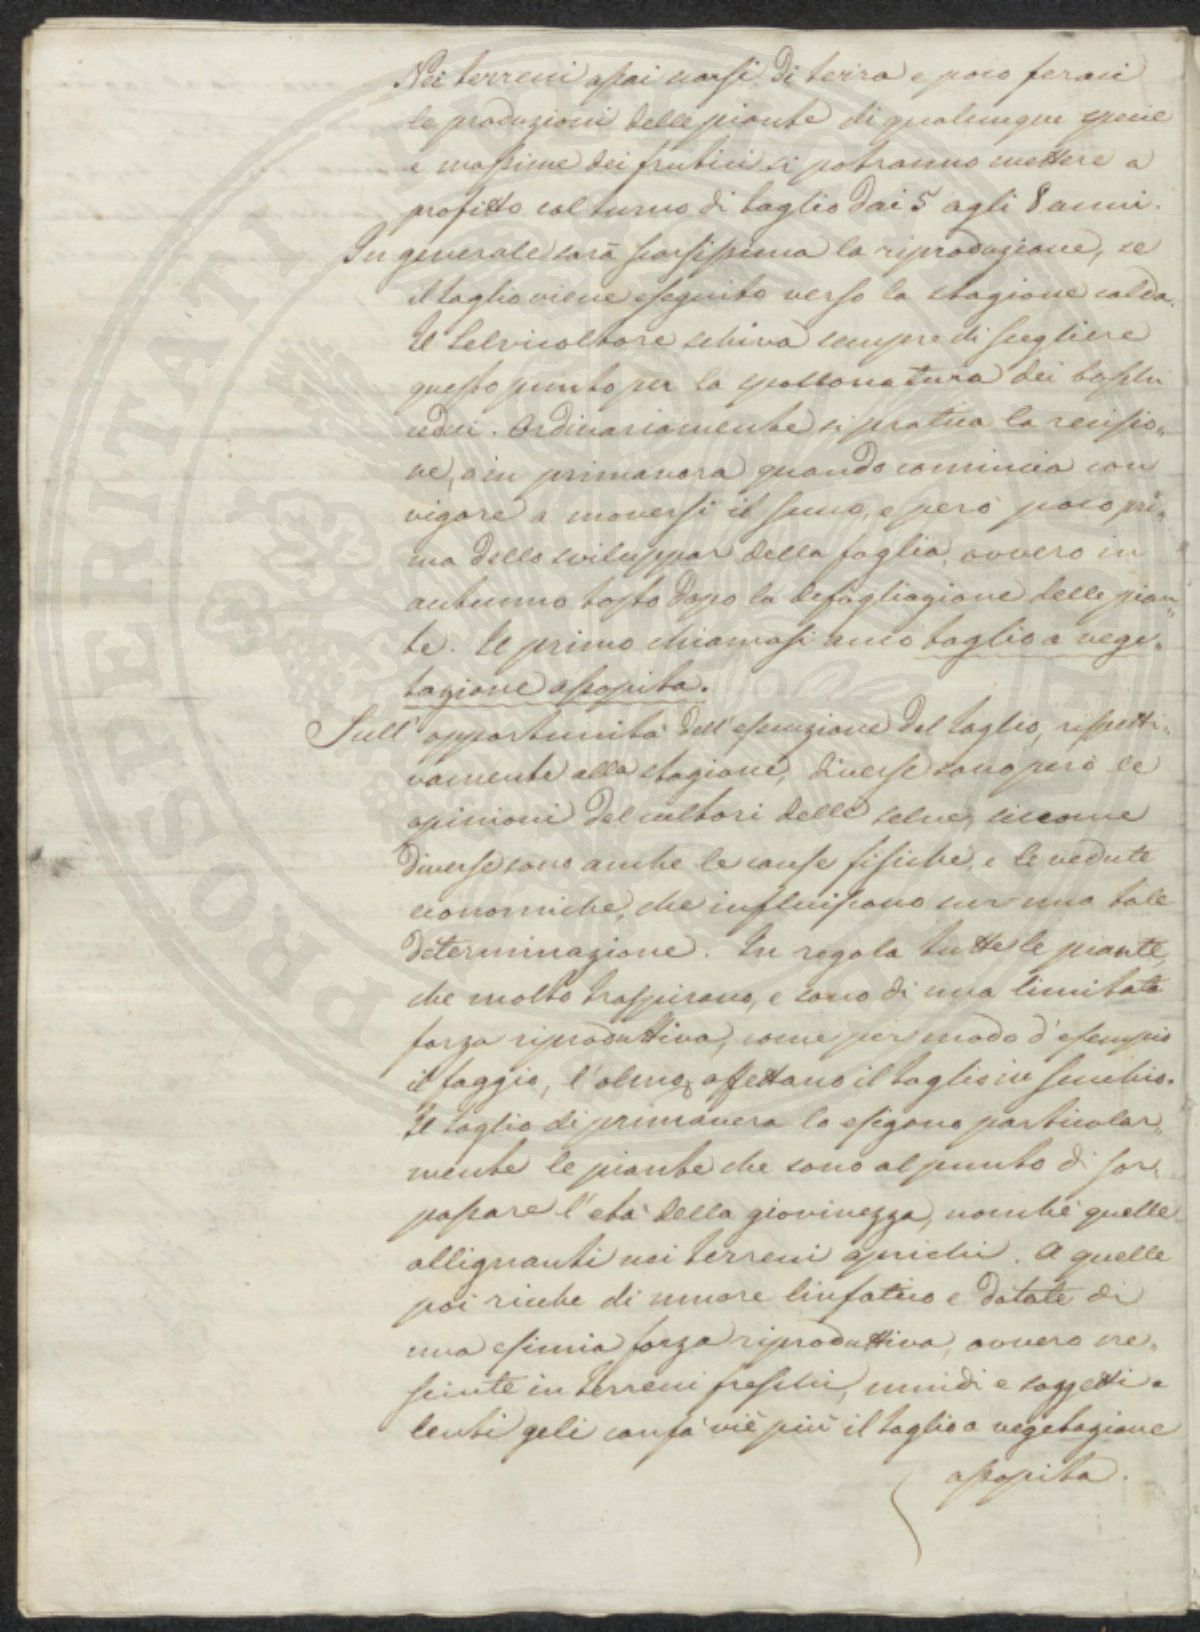 Nei terreni assai scarsi di terra e poco feraci
le produzioni delle piante di qualunque specie
e massime dei frutici si potranno mettere a
profitto col turno di taglio dai 5 agli 8 anni.
In generale sarà scarsissima la riproduzione, se
il taglio viene eseguito verso la stagione calda.
Il Selvicoltore schiva sempre di scegliere
questo punto per la spollonatura dei boschi
cedui. Ordinariamente si pratica la recisio„
ne, o in primavera quando comincia con
vigore a moversi il succo, e però poco pri„
ma dello sviluppar della foglia, ovvero in
autunno tosto dopo la defogliazione delle pian„
te. Il primo chiamasi anco taglio a vege„
tazione assopita.
Sull' opportunità dell' esecuzione del taglio, rispetti„
vamente alla stagione, diverse sono però le
opinioni dei cultori delle selve, siccome
diverse sono anche le cause fisiche, e le vedute
economiche, che influiscono sur una tale
determinazione. In regola tutte le piante,
che molto traspirano, e sono di una limitata
forza riproduttiva, come per modo d' esempio
il faggio, l' olmo, affettano il taglio in succhio.
Il taglio di primavera lo esigono particolar„
mente le piante che sono al punto di sor„
passare l' età della giovinezza, nonchè quelle
allignanti nei terreni aprichi. A quelle
poi ricche di umore linfatico e dotate di
una esimia forza riproduttiva, ovvero cre„
sciute in terreni freschi, umidi e soggetti a
lenti geli confà viè più il taglio a vegetazione
assopita.
PROSPERITATI